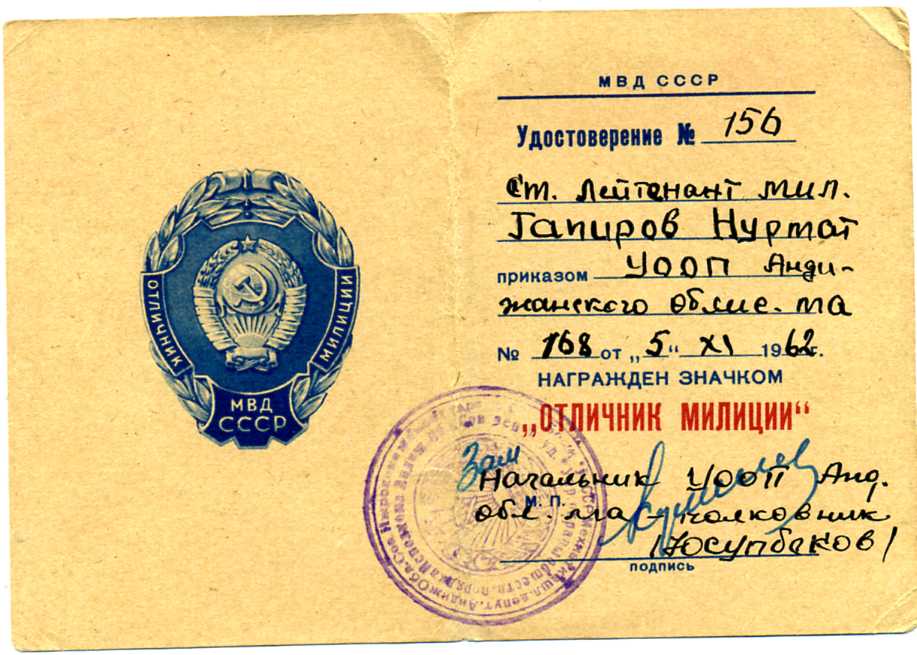 ОТЛИЧНИК
МИЛИЦИИ
МВД
СССР
МВД СССР
Удостоверение № 156
Ст. Лейтенант мил.
Гапиров Нурмат
приказом УООП Анди-
жанского облис-ма
№ 168 от „5“ XI 1962г.
НАГРАЖДЕН ЗНАЧКОМ
„ОТЛИЧНИК МИЛИЦИИ“
Зам
Начальник УООП Анд.
М. П.
обл. полковник
/Юсупбеков/
подпись